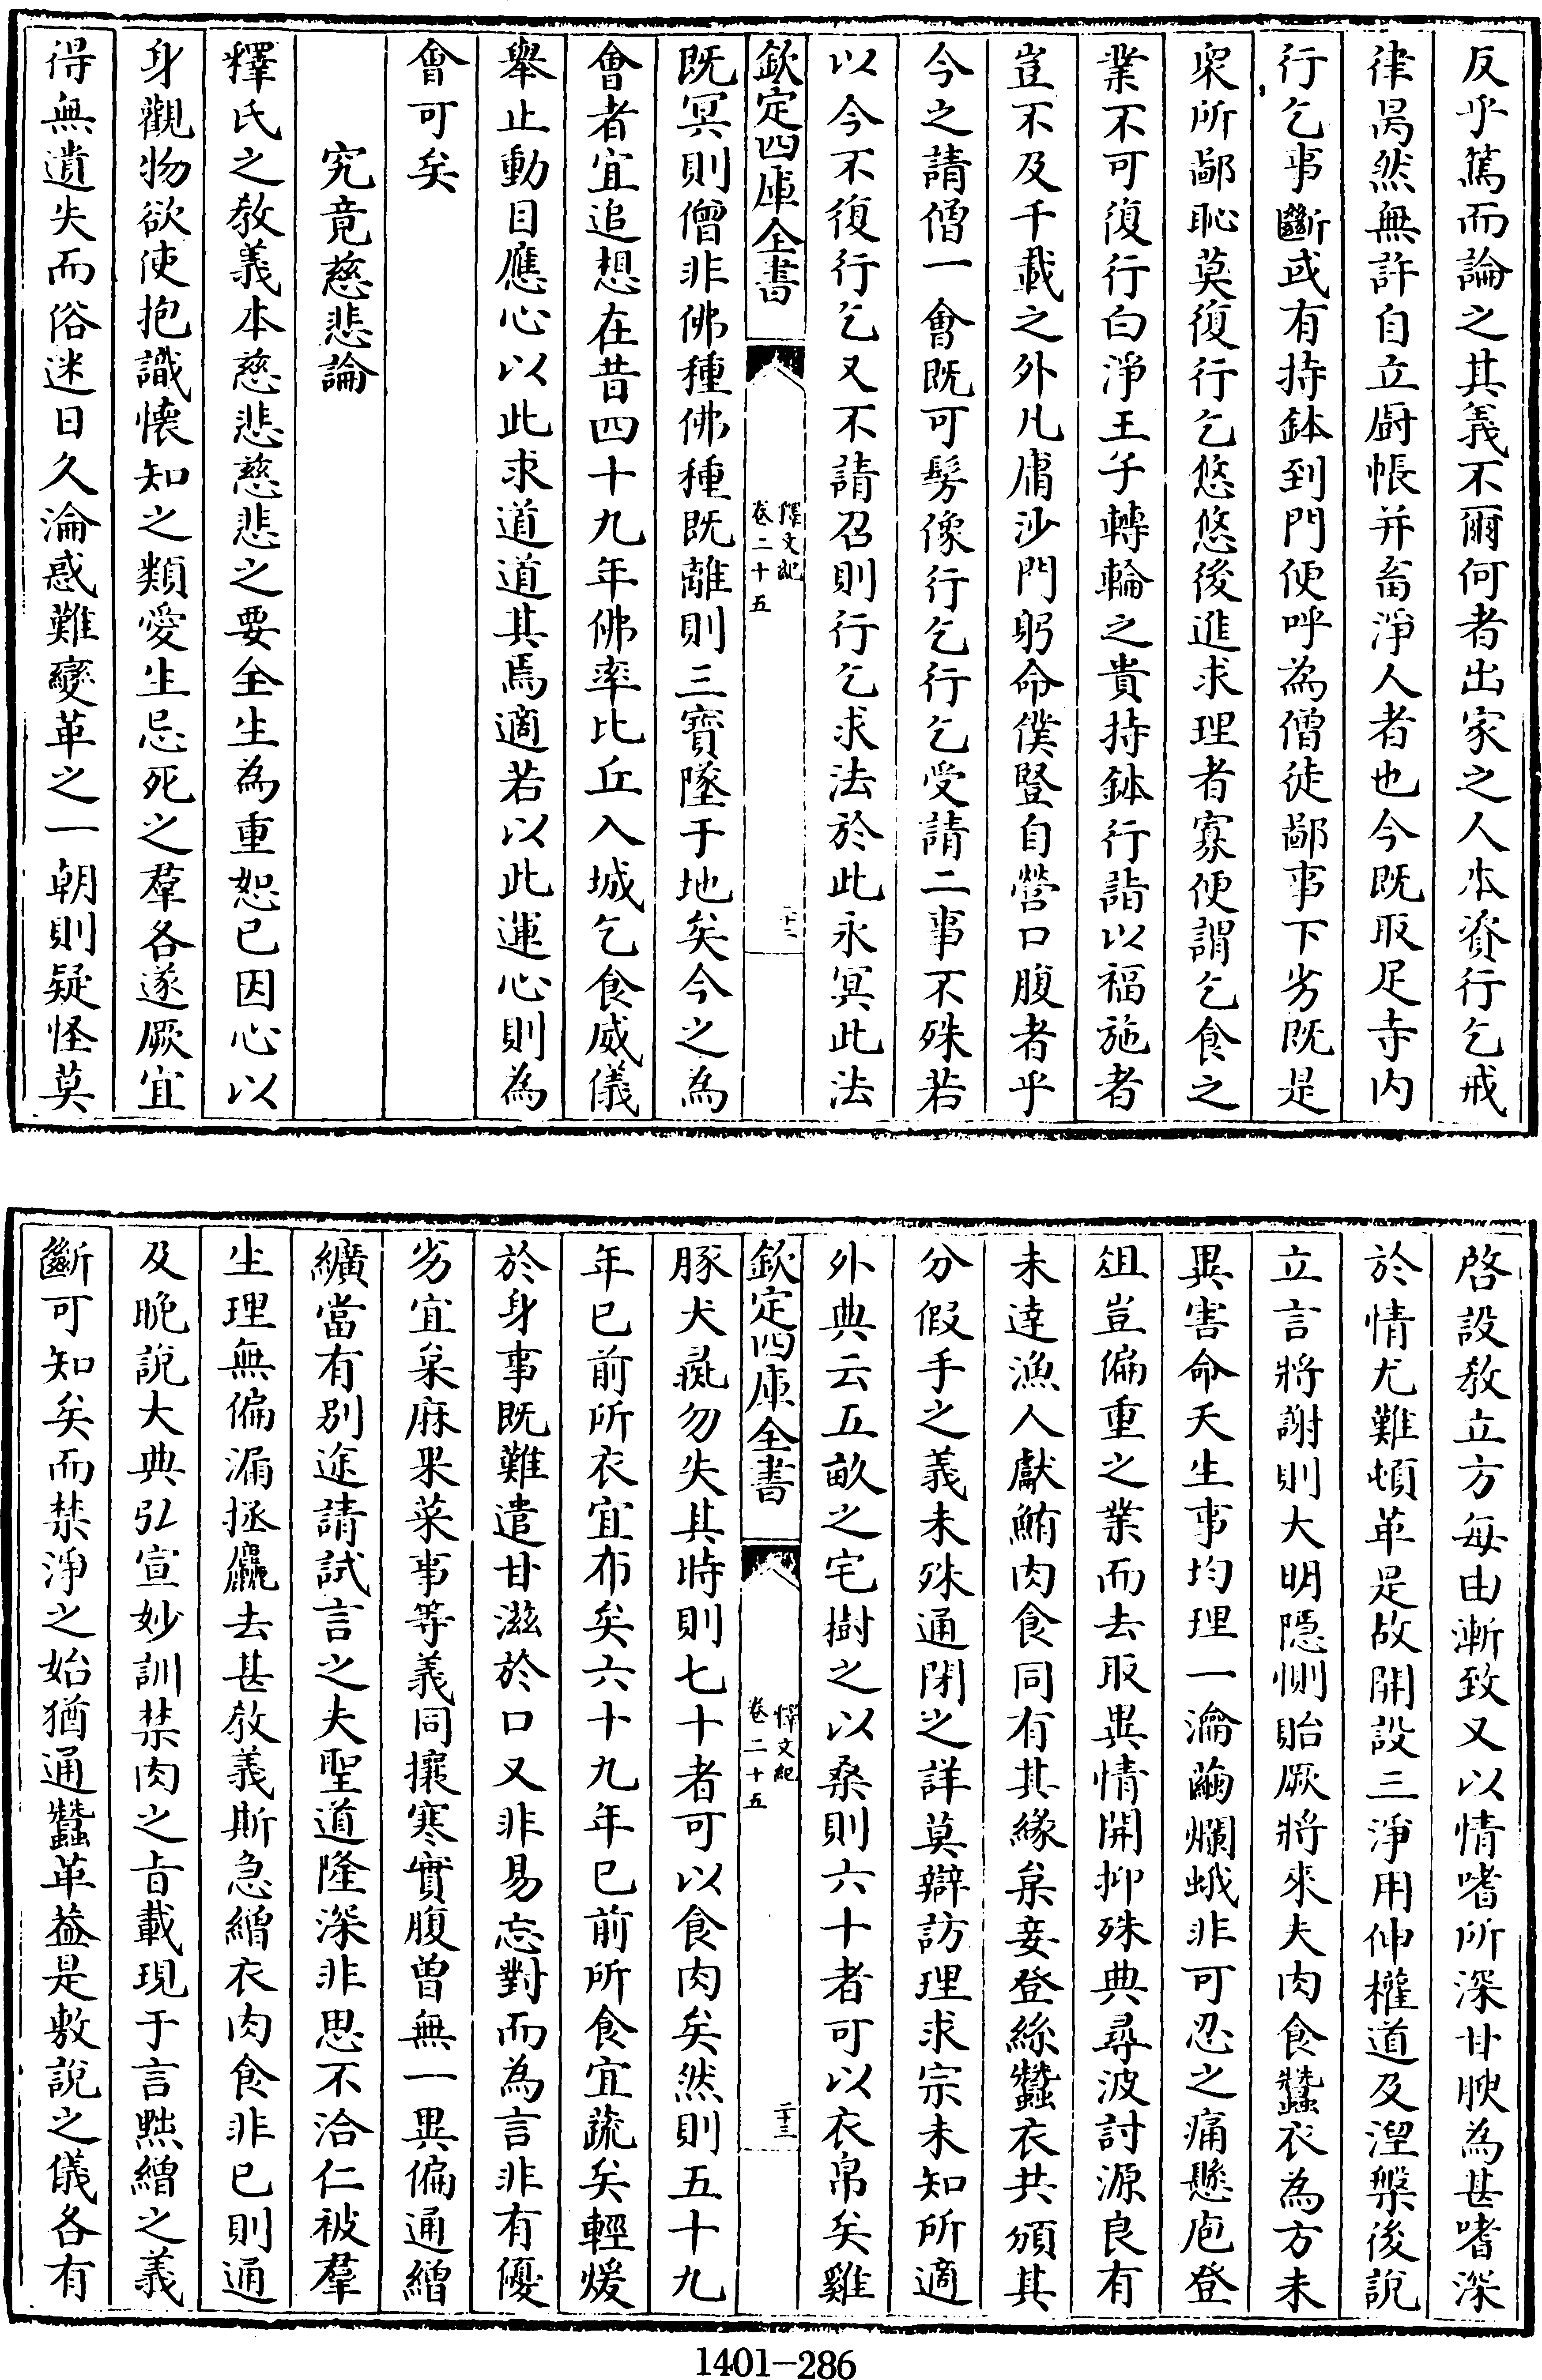 反乎篤而論之其義不爾何者出家之人本資行乞戒
律昺然無許自立廚帳并畜淨人者也今既取足寺内
行乞事斷或有持鉢到門便呼為僧徒鄙事下劣既是
衆所鄙恥莫復行乞悠悠後進求理者寡便謂乞食之
業不可復行白淨王子轉輪之貴持鉢行詣以福施者
豈不及千載之外凡庸沙門躬命僕豎自營口腹者乎
今之請僧一會既可髣像行乞行乞受請二事不殊若
以今不復行乞又不請召則行乞求法於此永冥此法
欽定四庫全書
釋文紀
卷二十五
既冥則僧非佛種佛種既離則三寶墜于地矣今之為
會者宜追想在昔四十九年佛率比丘入城乞食威儀
舉止動目應心以此求道道其焉適若以此運心則為
會可矣
究竟慈悲論
釋氏之教義本慈悲慈悲之要全生為重恕已因心以
身觀物欲使抱識懷知之類愛生忌死之羣各遂厥宜
得無遺失而俗迷日久淪惑難變革之一朝則疑怪莫
啓設教立方每由漸致又以情嗜所深甘腴為甚嗜深
於情尤難頓革是故開設三淨用伸權道及涅槃後說
立言將謝則大明隱惻貽厥將來夫肉食蠶衣為方未
異害命夭生事均理一瀹繭爛蛾非可忍之痛懸庖登
俎豈偏重之業而去取異情開抑殊典尋波討源良有
未達漁人獻鮪肉食同有其緣枲妾登絲蠶衣共頒其
分假手之義未殊通閉之詳莫辯訪理求宗未知所適
外典云五畝之宅樹之以桑則六十者可以衣帛矣雞
欽定四庫全書
釋文紀
卷二十五
二十三
豚犬彘勿失其時則七十者可以食肉矣然則五十九
年已前所衣宜布矣六十九年已前所食宜蔬矣輕煖
於身事既難遣甘滋於口又非易忘對而為言非有優
劣宜枲麻果菜事等義同攘寒實腹曾無一異偏通繒
纊當有别途請試言之夫聖道隆深非思不洽仁被羣
生理無偏漏拯麤去甚教義斯急繒衣肉食非已則通
及晚說大典弘宣妙訓禁肉之旨載現于言黜繒之義
斷可知矣而禁淨之始猶通蠶革葢是敷說之儀各有
1401-286